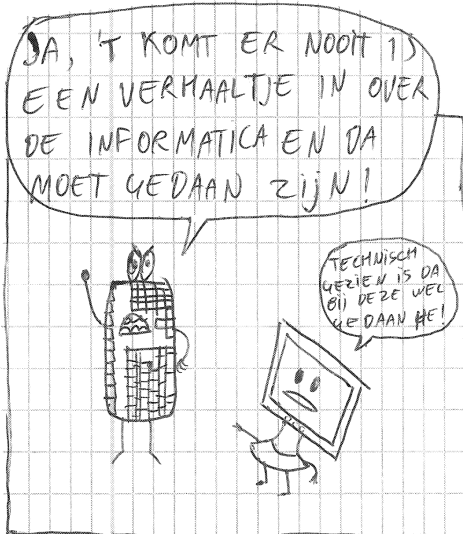 JA, 'T KOMT ER NOOIT IS
EEN VERHAALTJE IN OVER
DE INFORMATICA EN DA
MOET GEDAAN ZIJN!
TECHNISCH
GEZIEN IS DA
BIJ DEZE WEL
GEDAAN HE!